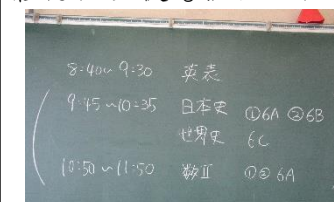 8:40~9:30 英表
9:45~10:35 日本史 ①6A ②6B
世界史 6C
10:50~11:50 数Ⅱ ①② 6A